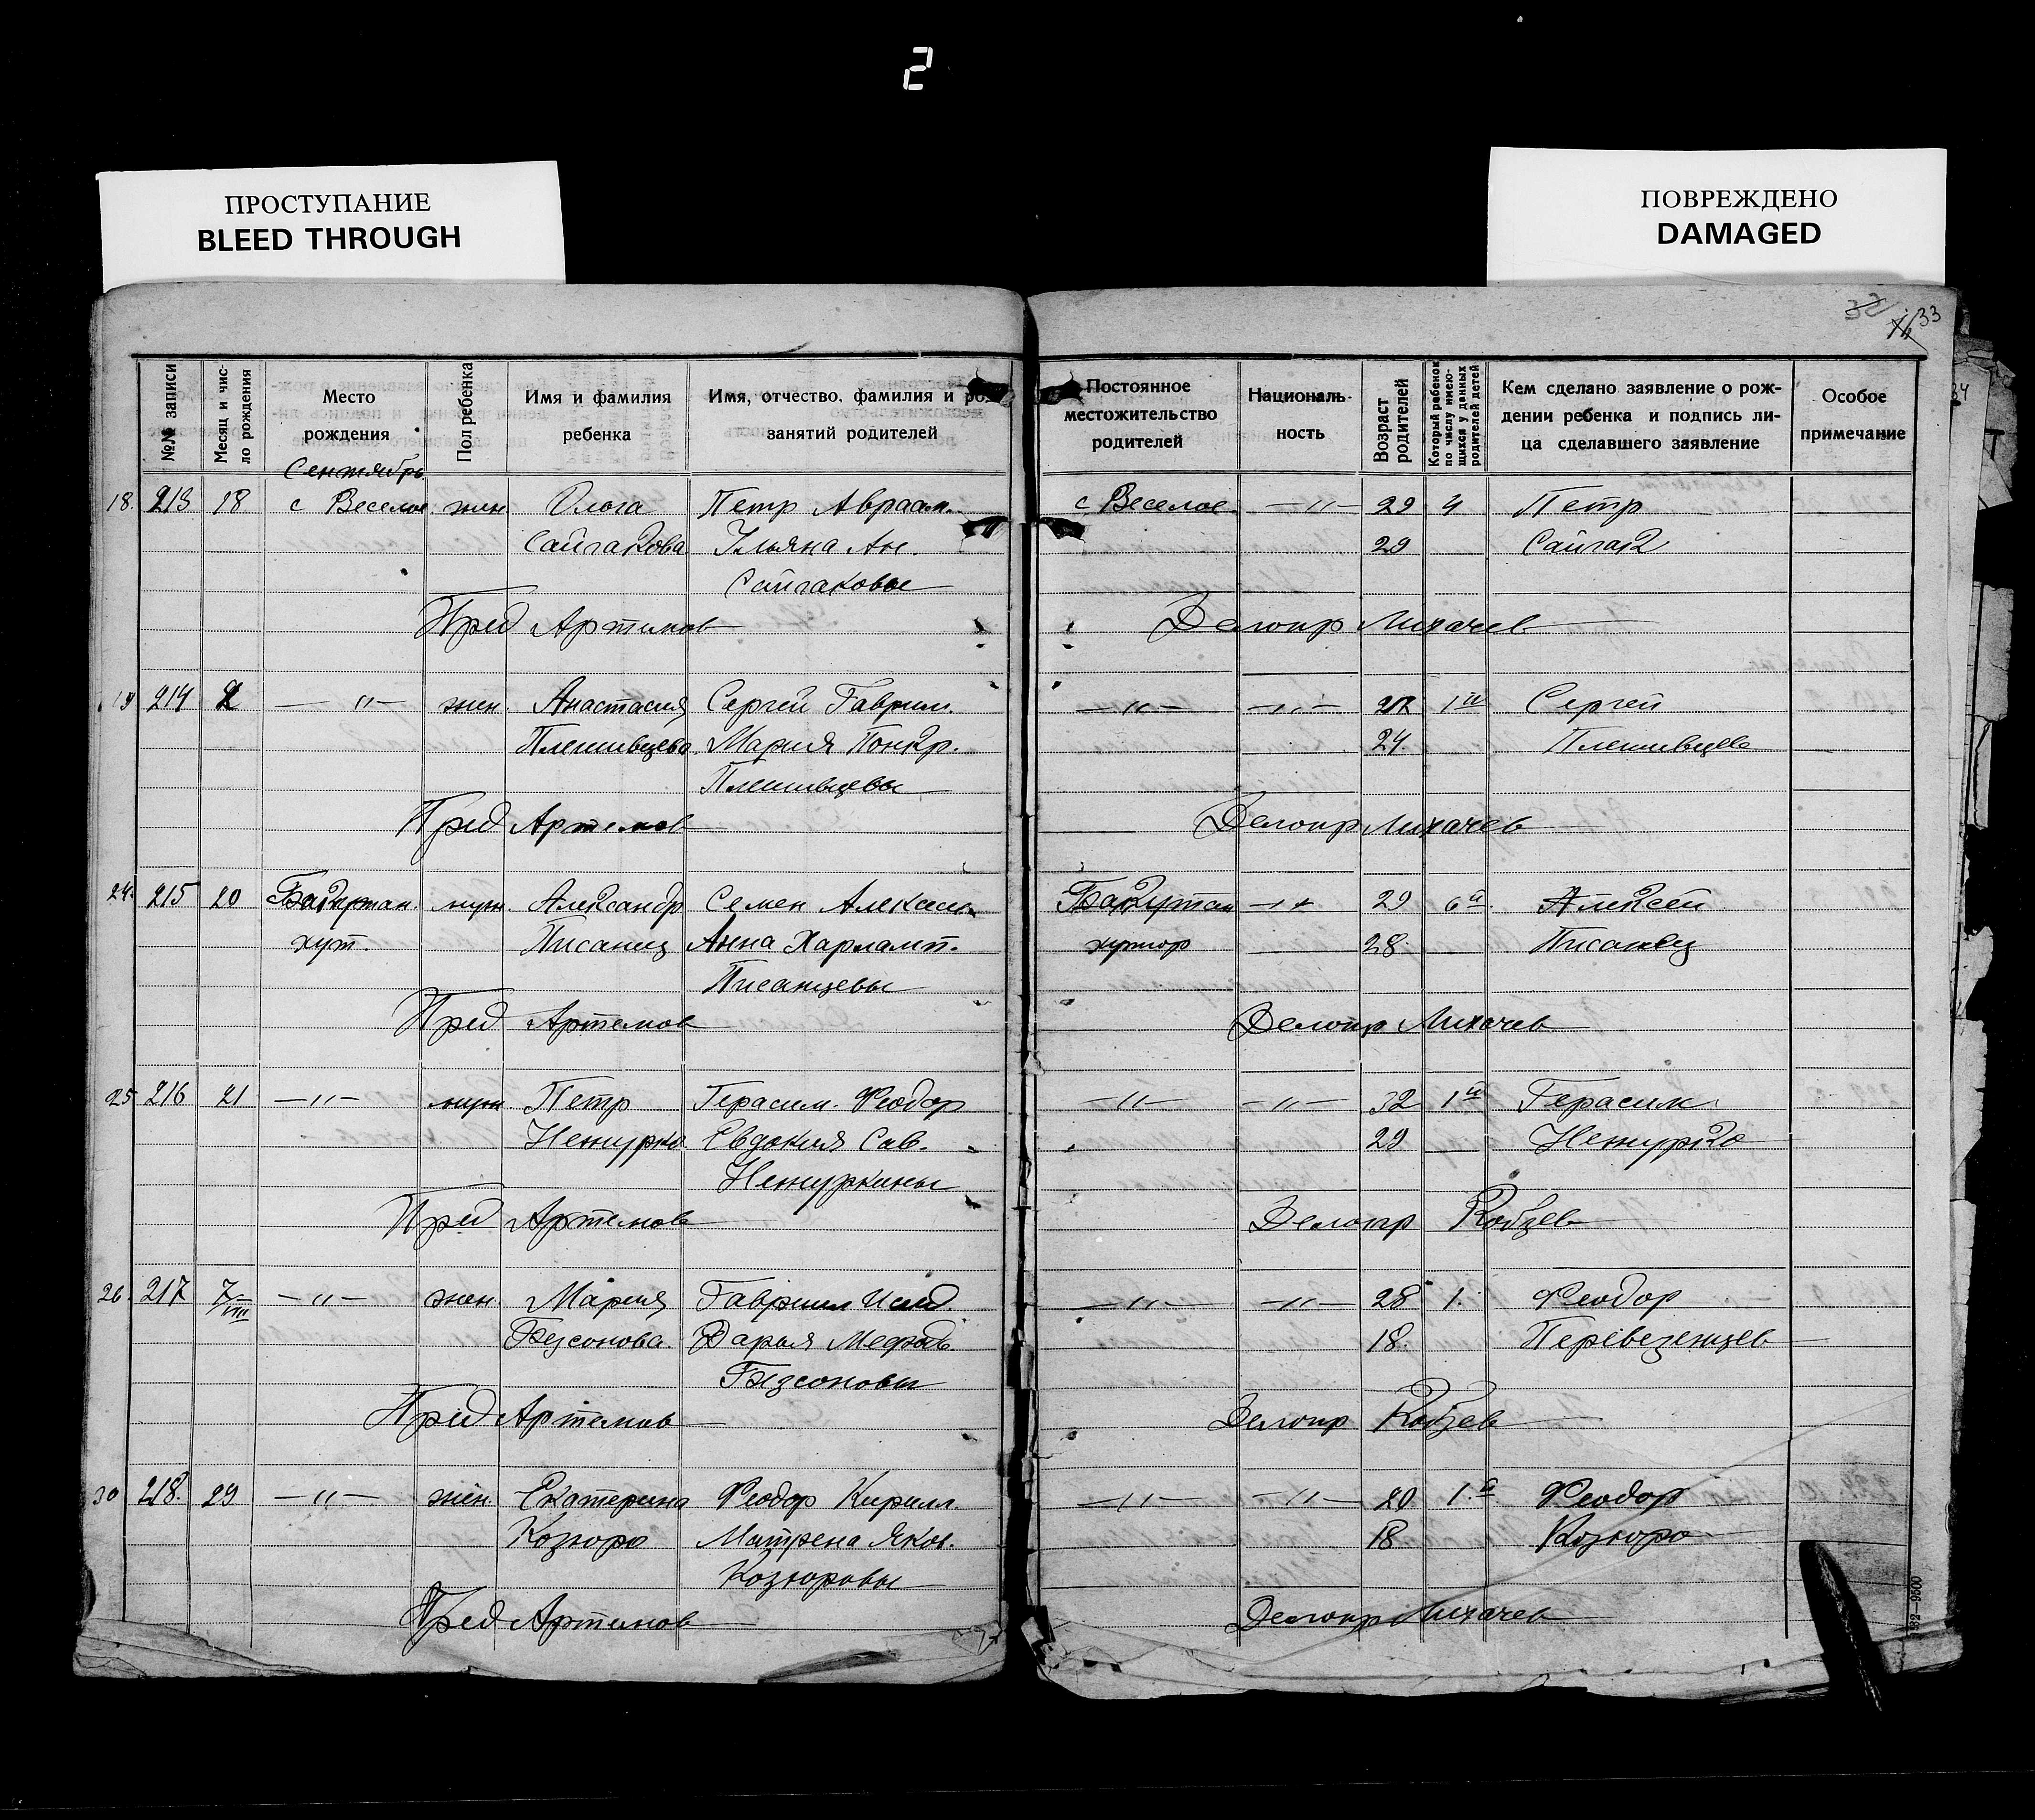 2
ПРОСТУПАНИЕ
BLEED THROUGH
ПОВРЕЖДЕНО
DAMAGED
33
34
№№ записи
Месяц и чис-
ло рождения
Место
рождения
Пол ребенка
Имя и фамилия
ребенка
Имя, отчество, фамилия и ро
занятий родителей
Постоянное
местожительство
родителей
Националь-
ность
Возраст
родителей
Который ребенок
по числу имею-
щихся у данных
родителей детей
Кем сделано заявление о рож-
дении ребенка и подпись ли-
ца сделавшего заявление
Особое
примечание
Сентябрь
18. 213 18 с Веселое жен Ольга Петр Авраам. с Веселое — " — 29 4 Петр
Сайгакова Ульяна Ан. 29 Сайгак
Сайгаковы
Пред Артемов Делопр Лихачев
19 214 — " — жен. Анастасия Сергей Гаврил. — " — — " — 1й Сергей
Плешивцева Мария Понкр. 24. Плешивцев
Плешивцевы
Пред Артемов Делопр Лихачев
24. 215 20 муж. Александр Семен Алексан 29 6й Алексей
хут. Писанец Анна Харламп. хутор 28. Писанец
Писанцевы
Пред Артемов Делопр Лихачев
25 216 21 — " — муж Петр Герасим. Феодор — " — — " — 32 1й Герасим
Нежурко Евдокия Сав. 29 Нежурко
Нежуркины
Пред Артемов Делопр Кобзев
26. 217 7/VIII — " — жен. Мария Гавриил Исид. — " — — " — 28 1. Феодор
Безсонова. Дарья Мефод. 18. Перевезенцев
Безсоновы
Пред Артемов Делопр Кобзев
30 218. 29 — " — жен. Екатерина Феодор Кирилл. — " — — " — 20 1.й Феодор
Козюро Матрена Яков. 18 Козюро
Козюровы
Пред Артемов Делопр Лихачев